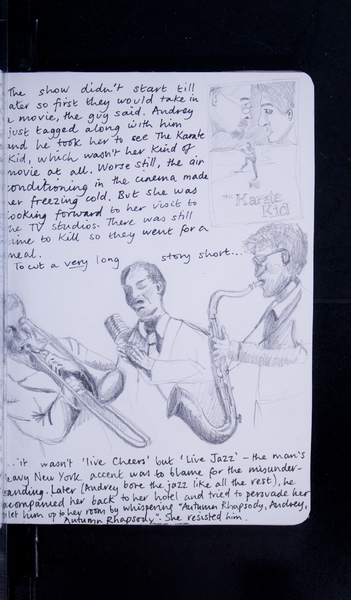 The show didn't start till
later so first they would take in
a movie, the guy said. Audrey
just tagged along with him
and he took her to see The Karate
Kid, which wasn't her kind of
movie at all. Worse still, the air
conditioning in the cinema made
her freezing cold. But she was
looking forward to her visit to
the TV studios. There was still
time to kill so they went for a
meal.
The Karate
Kid
To cut a very long story short...
...it wasn't 'live Cheers' but 'Live Jazz' - the man's
heavy New York accent was to blame for the misunder-
standing. Later (Audrey bore the jazz like all the rest), he
accompanied her back to her hotel and tried to persuade her
to let him up to her room by whispering "Autumn Rhapsody, Audrey,
Autumn Rhapsody". She resisted him.